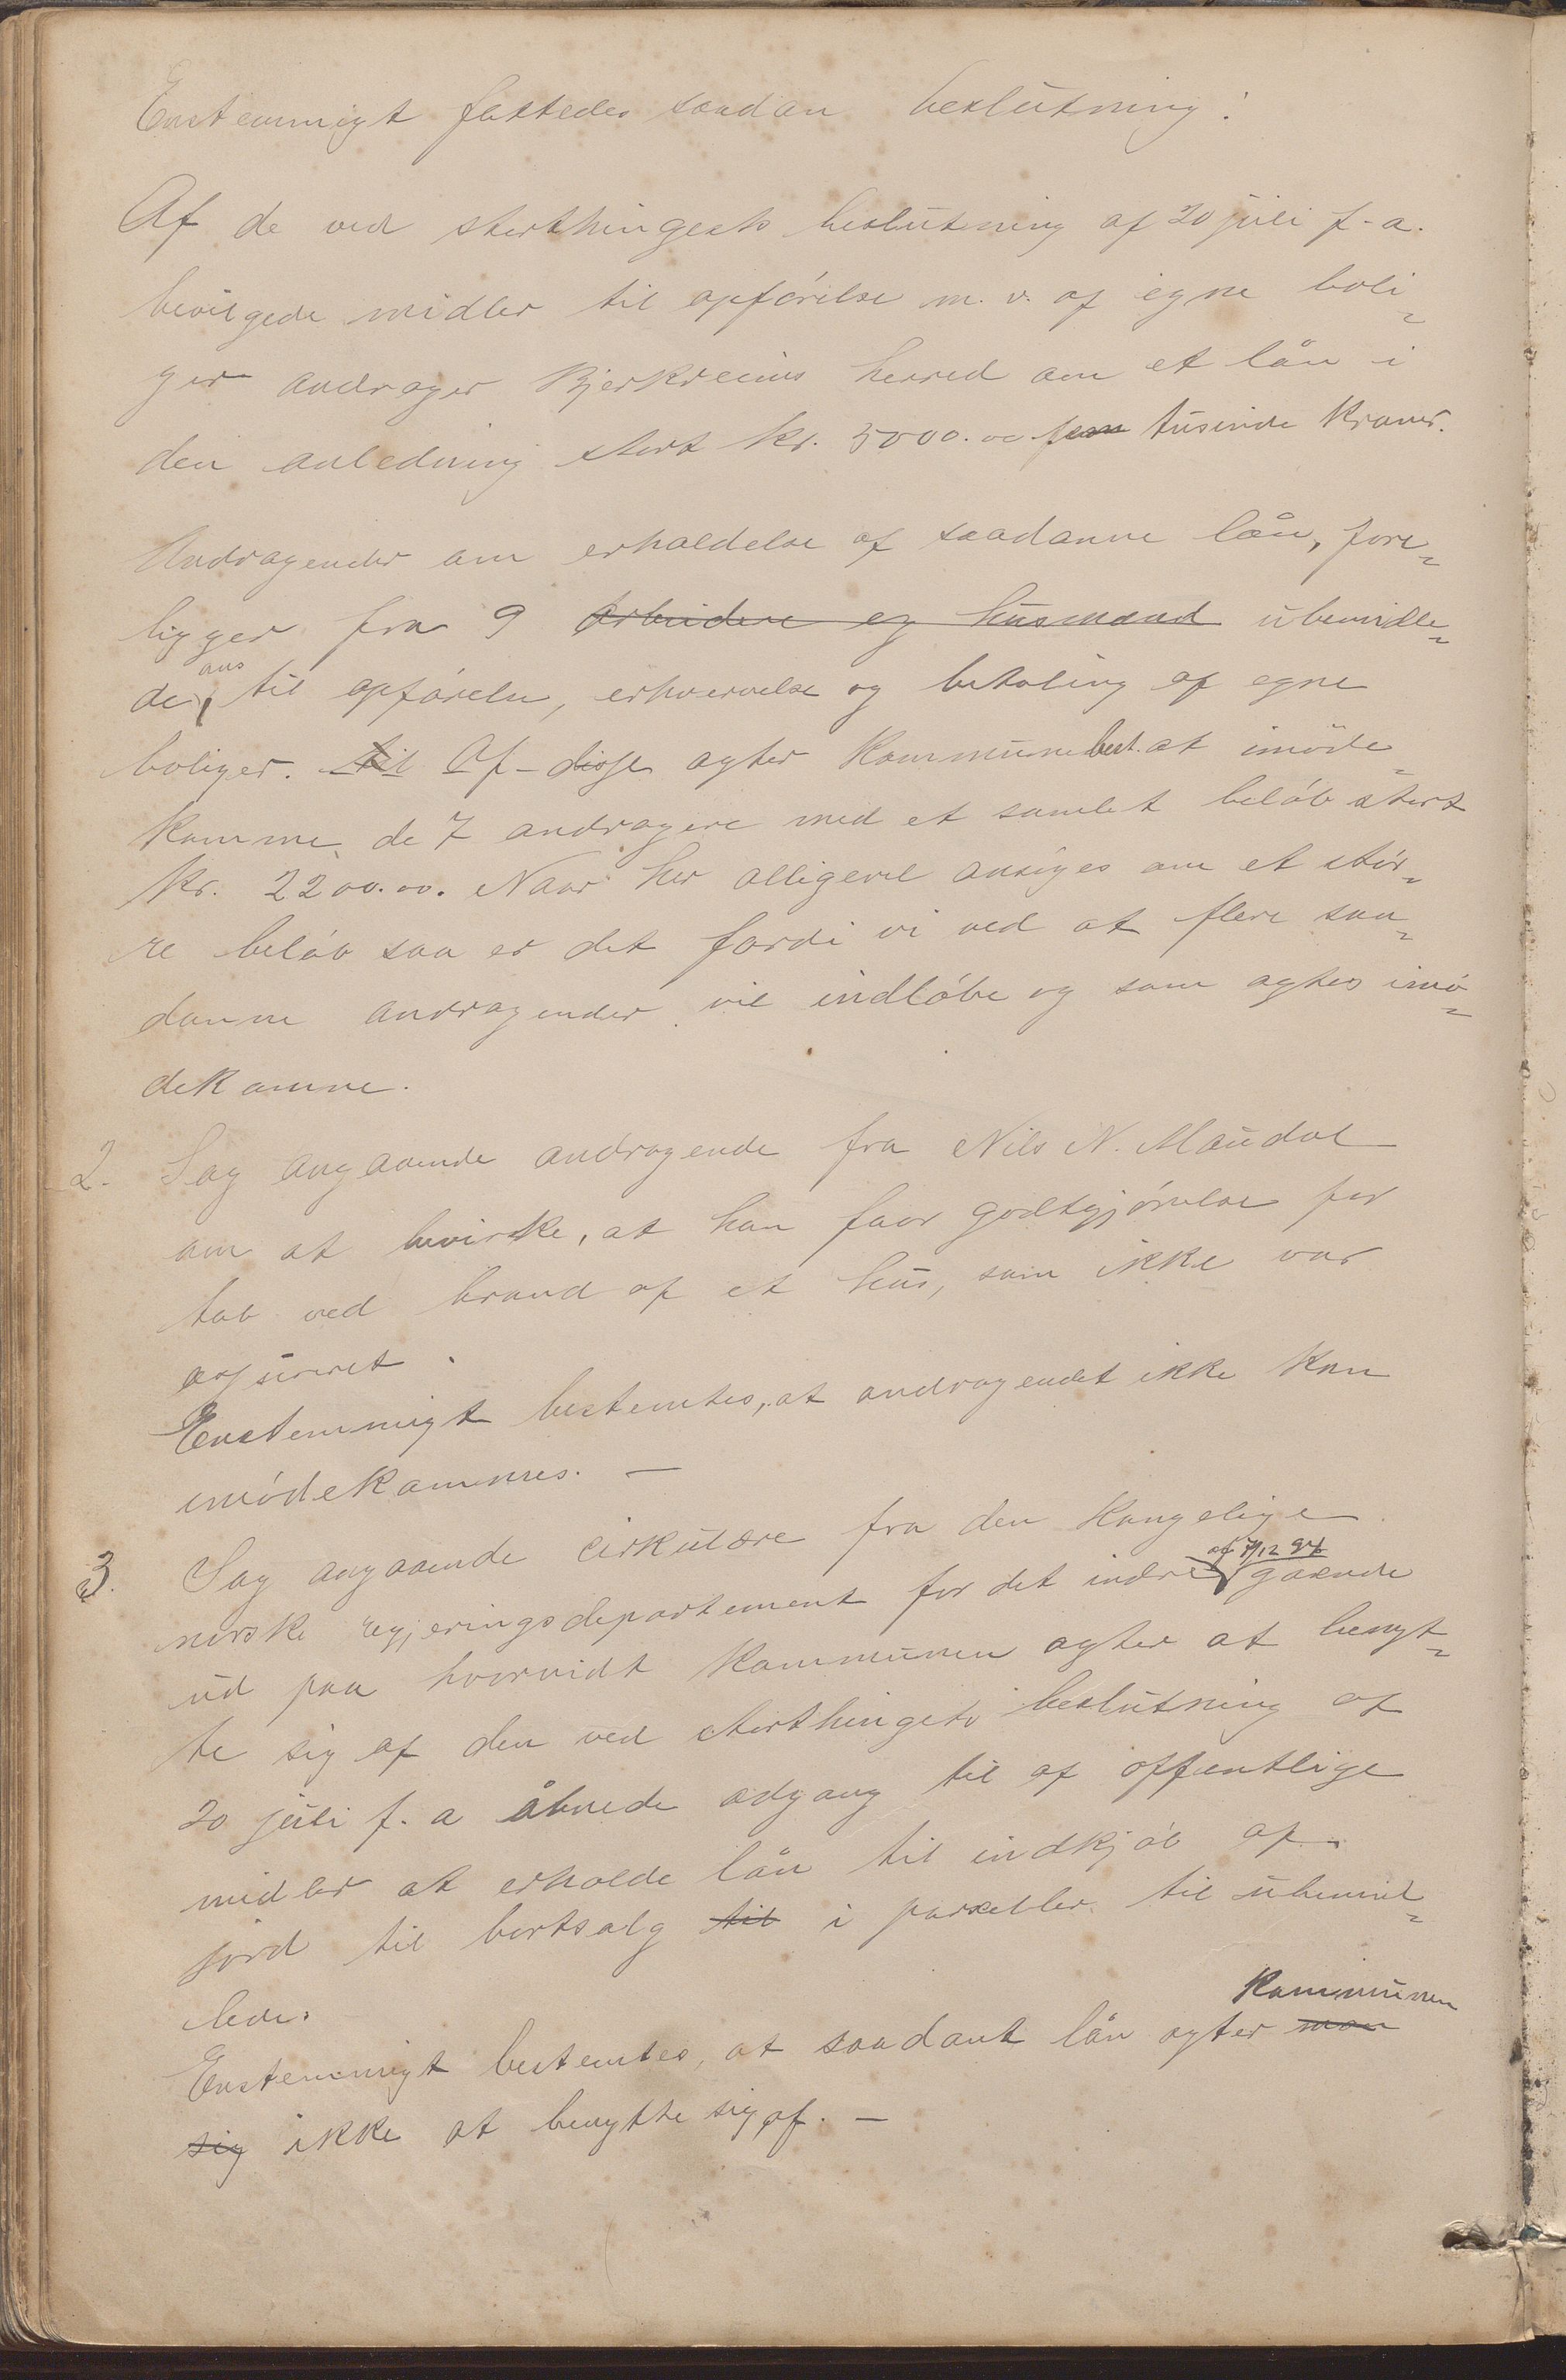 Enstemmigt fattedes saadan beslutning:
Af de ved storthingets beslutning af 20 juli f. a.
bevilgede midler til opførelse m. v. af egne boli-
ger andrager Bjerkreims herred om et lån i
den anledning stort kr. 5000.00 fem tusinde kroner.
Andragender om erholdelse af saadanne lån, fore-
ligger fra 9 arbeidere og husmænd ubemidle-
de, til opførelse, erhvervelse og betaling af egne
boliger. til Af disse agter kommunebest. at imøde-
komme de 7 andragere med et samlet beløb stort
kr. 2200.00. Naar her alligevel ansøges om et stør-
re beløb saa er det fordi vi ved at flere saa-
danne andragender vil indløbe og som agtes imø-
dekomme.
2. Sag angaaende andragende fra Nils N. Maudal
om at bevirke, at han faar godtgjørelse for
tab ved brand af et hus, som ikke var
assureret.
Enstemmigt bestemtes, at andragendet ikke kan
imødekommes. —
3. Sag angaaende cirkulære fra den Kongelige
norske regjeringsdepartement for det indre af 7/12 94 gaaende
ud paa hvorvidt kommunen agter at benyt-
te sig af den ved storthingets beslutning af
20 juli f. a åbnede adgang til af offentlige
midler at erholde lån til indkjøb af
jord til bortsalg til i parseller til ubemid-
lede.
Enstemmigt bestemtes, at saadant lån agter man kommunen
sig ikke at benytte sig af. —